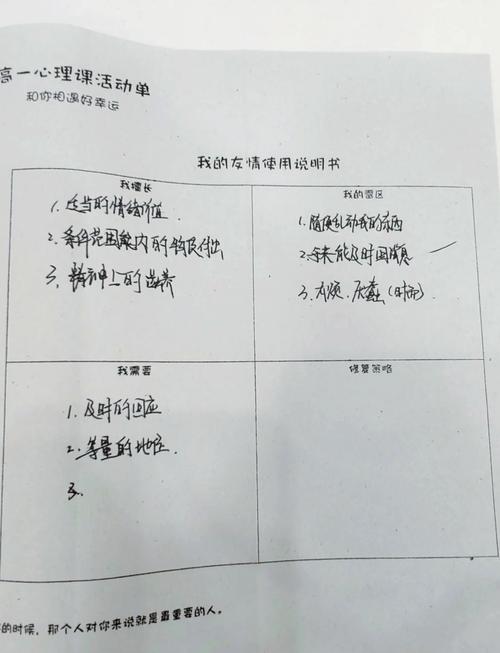 高一心理课活动单
和你相遇好幸运
我的友情使用说明书
我擅长
1. 适当的情绪价值
2. 条件范围内的物质付出
3. 精神上的滋养
我的雷区
1. 随便乱动我的东西
2. 未能及时回
3. (时而)
我需要
1. 及时的回应
2. 等量的地位
3.
修复策略
的时候，那个人对你来说就是最重要的人。